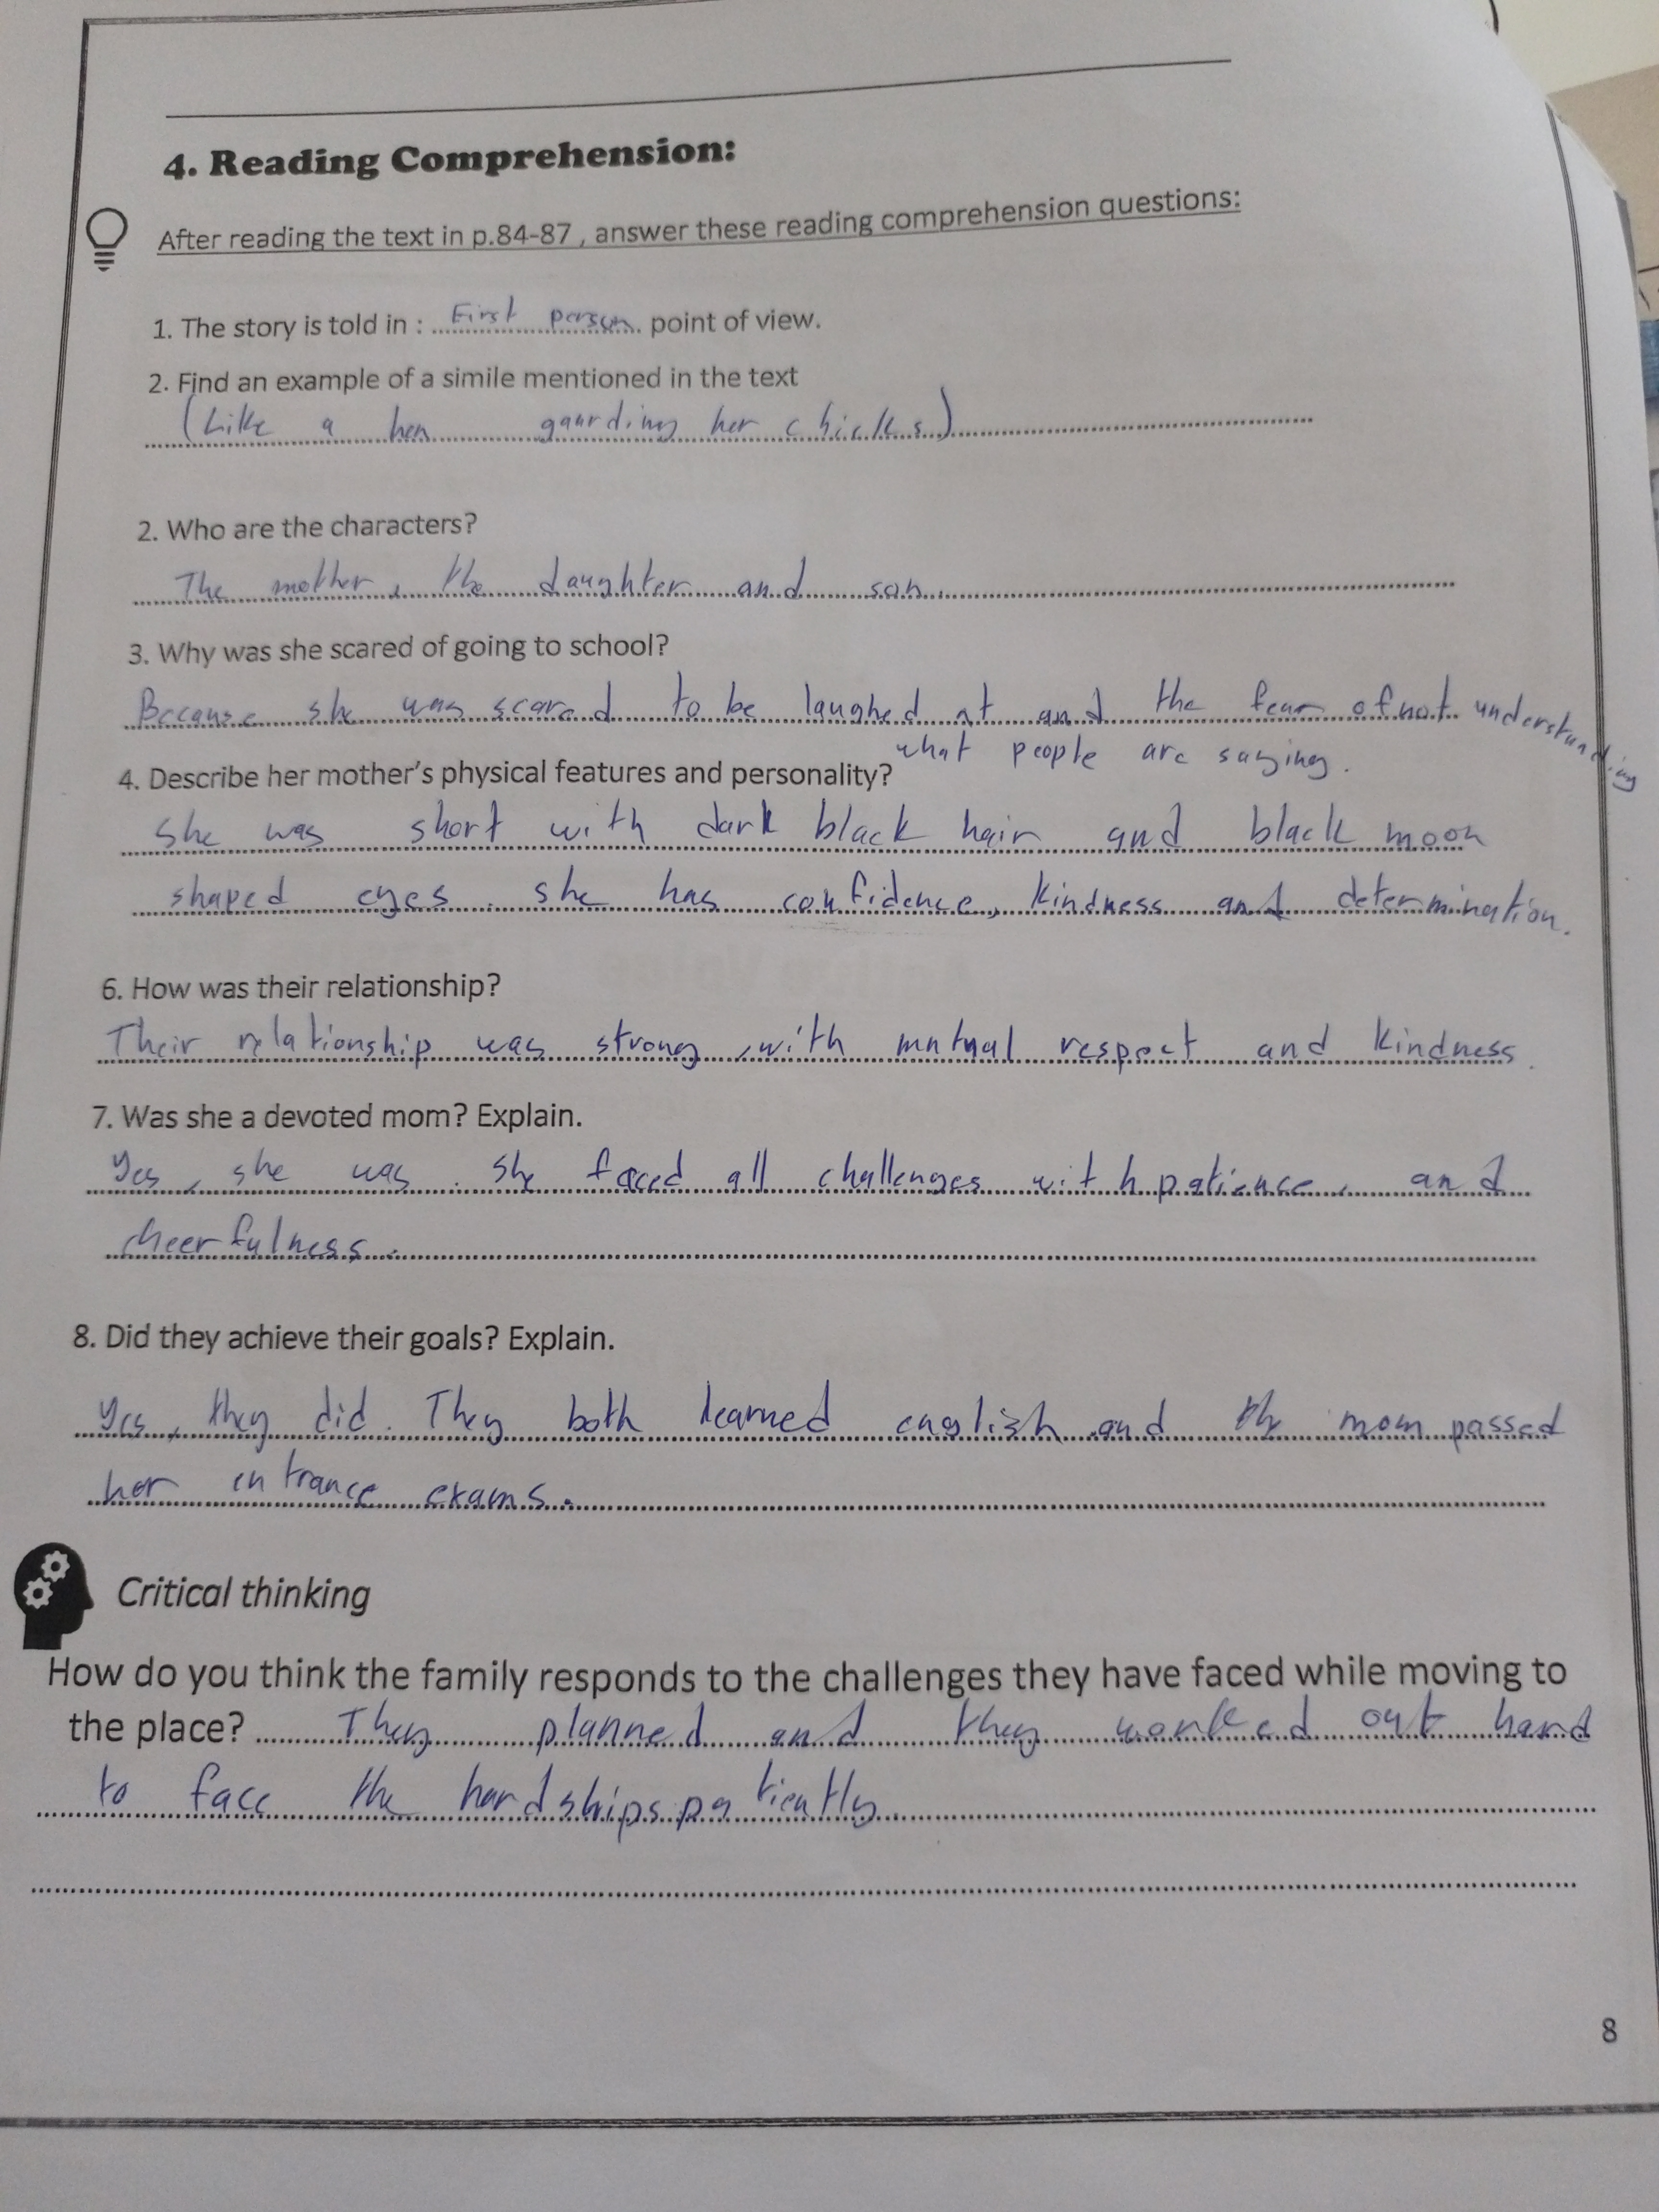 4. Reading Comprehension:
After reading the text in p.84-87 , answer these reading comprehension questions:
1. The story is told in : First person point of view.
2. Find an example of a simile mentioned in the text
(Like a hen gaurding her chicks)
2. Who are the characters?
The mother, the daughter and son.
3. Why was she scared of going to school?
Because she was scared to be laughed at and the fear of not understanding
what people are saying.
4. Describe her mother's physical features and personality?
She was short with dark black hair and black moon
shaped eyes. she has confidence, kindness and determination.
6. How was their relationship?
Their relationship was strong, with mutual respect and kindness.
7. Was she a devoted mom? Explain.
Yes, she was. She faced all challenges with patience, and
cheerfulness.
8. Did they achieve their goals? Explain.
Yes, they did. They both learned english and the mom passed
her entrance exams.
Critical thinking
How do you think the family responds to the challenges they have faced while moving to
the place? They planned and they worked out hard
to face the hardships patiently
8